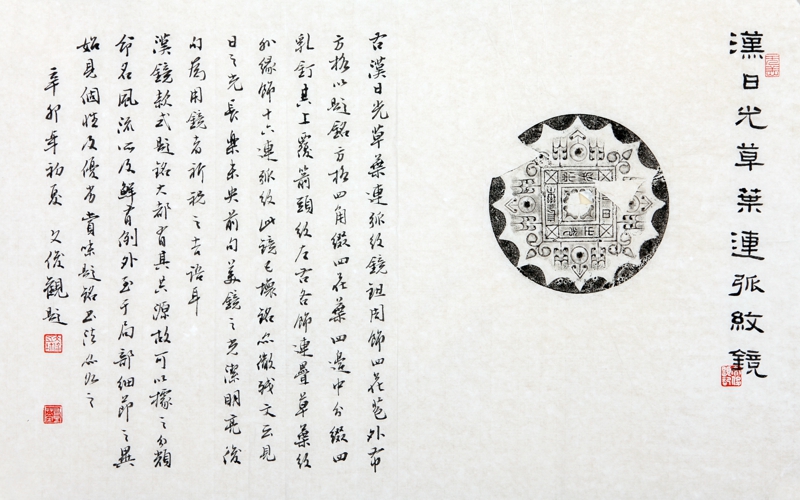 漢日光草葉連弧紋鏡
右漢日光草葉連弧紋鏡鈕周飾四花苞外布
方格以題銘方格四角綴四花葉四邊中分綴四
乳釘其上覆箭頭紋左右各飾連疊草葉紋
外緣飾十六連弧紋此鏡已壞銘亦散残文云見
日之光長樂未央前句美鏡之光潔明亮後
句為用鏡者祈祝之吉語耳
漢鏡款式題銘大都有其淵源故可以據之分類
命名風流所及鮮有例外至于局部細節之異
始見個性及優劣賞味題銘書法亦如之
辛卯年初夏文俊觀題